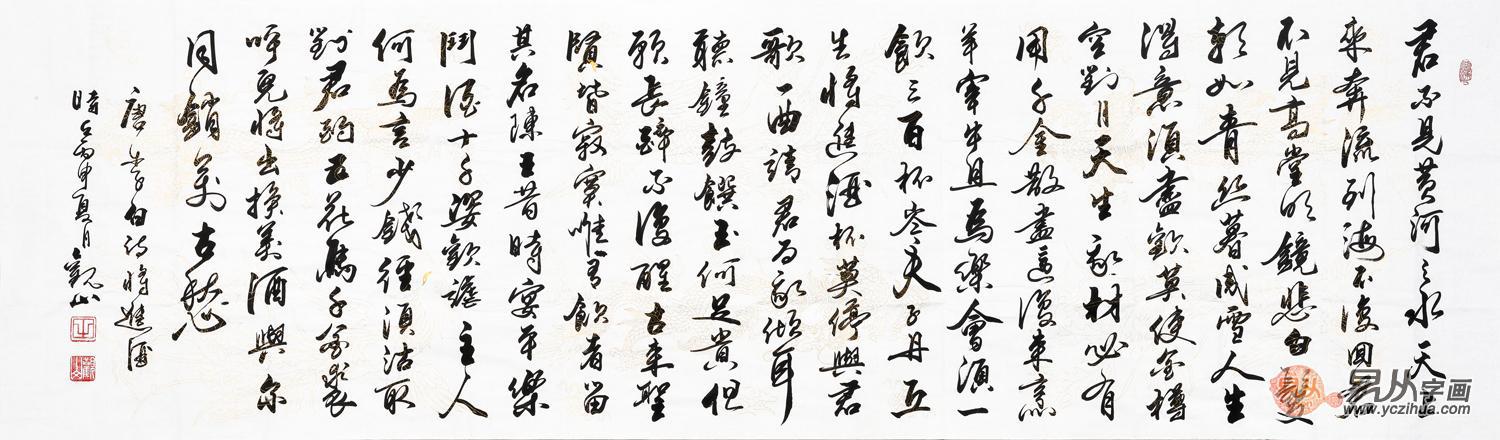 君不見黃河之水天上
來奔流到海不復回君
不見高堂明鏡悲白髮
朝如青絲暮成雪人生
得意須盡歡莫使金樽
空對月天生我材必有
用千金散盡還復來烹
羊宰牛且為樂會須一
飲三百杯岑夫子丹丘
生將進酒杯莫停與君
歌一曲請君為我傾耳
聽鐘鼓饌玉何足貴但
願長醉不復醒古來聖
賢皆寂寞惟有飲者留
其名陳王昔時宴平樂
鬥酒十千姿歡謔主人
何為言少錢徑須沽取
對君酌五花馬千金裘
呼兒將出換美酒與爾
同銷萬古愁
唐李白詩將進酒
時在丙申夏月觀山
易从字画
www.yczihua.com